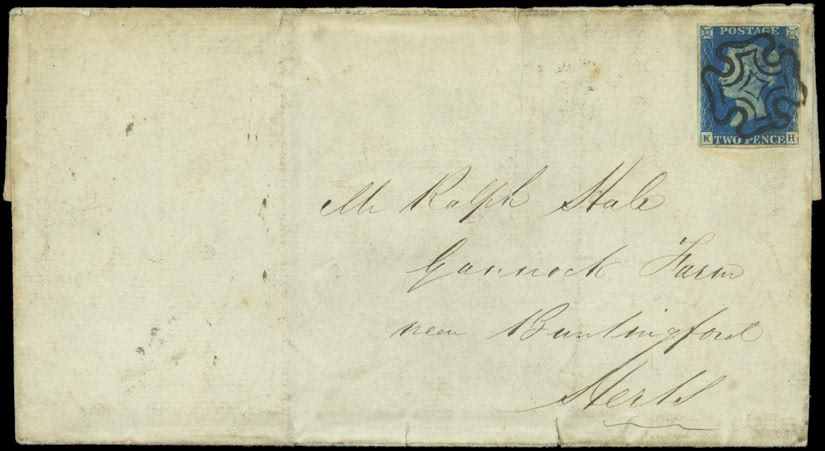 POSTAGE
K TWO PENCE H
Mr Ralph Hale
Gannock Farm
near Buntingford
Herts